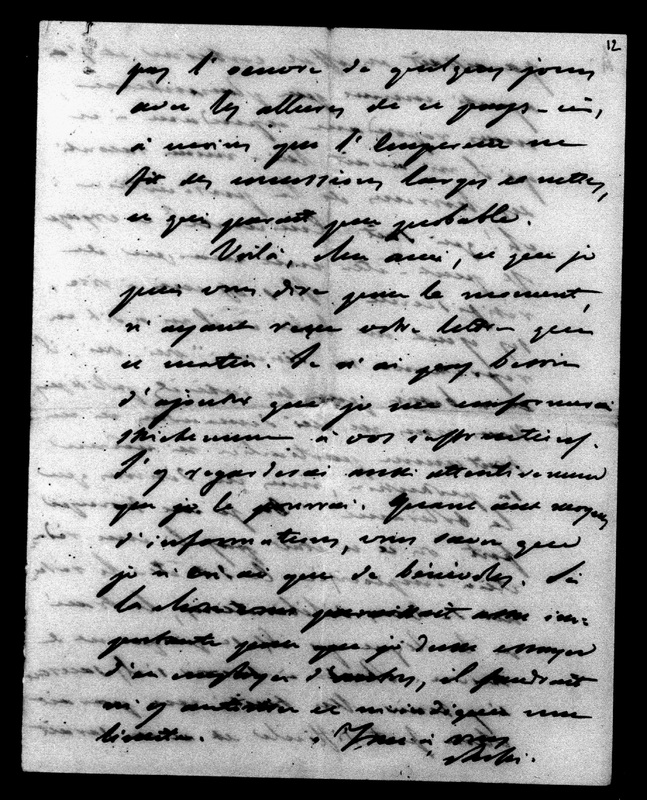 12
pas l'oeuvre de quelques jours
avec les allures de ce pays-ci,
à moins que l'Empereur ne
fît des concessions larges et nettes,
ce qui parait peu probable.
Voilà, cher ami, ce que je
puis vous dire pour le moment,
n'ayant reçu votre lettre que
ce matin. Je n'ai pas besoin
d'ajouter que je me conformerai
strictement à vos instructions.
J'y regarderai aussi attentivement
que je le pourrai. Quant aux moyens
d'informations, vous savez que
je n'en ai que de bénévoles. Si
la chose vous paraissait assez im-
portante pour que je dusse essayer
d'en employer d'autres, il faudrait
m'y autoriser et m'indiquer une
limite. Tout à vous